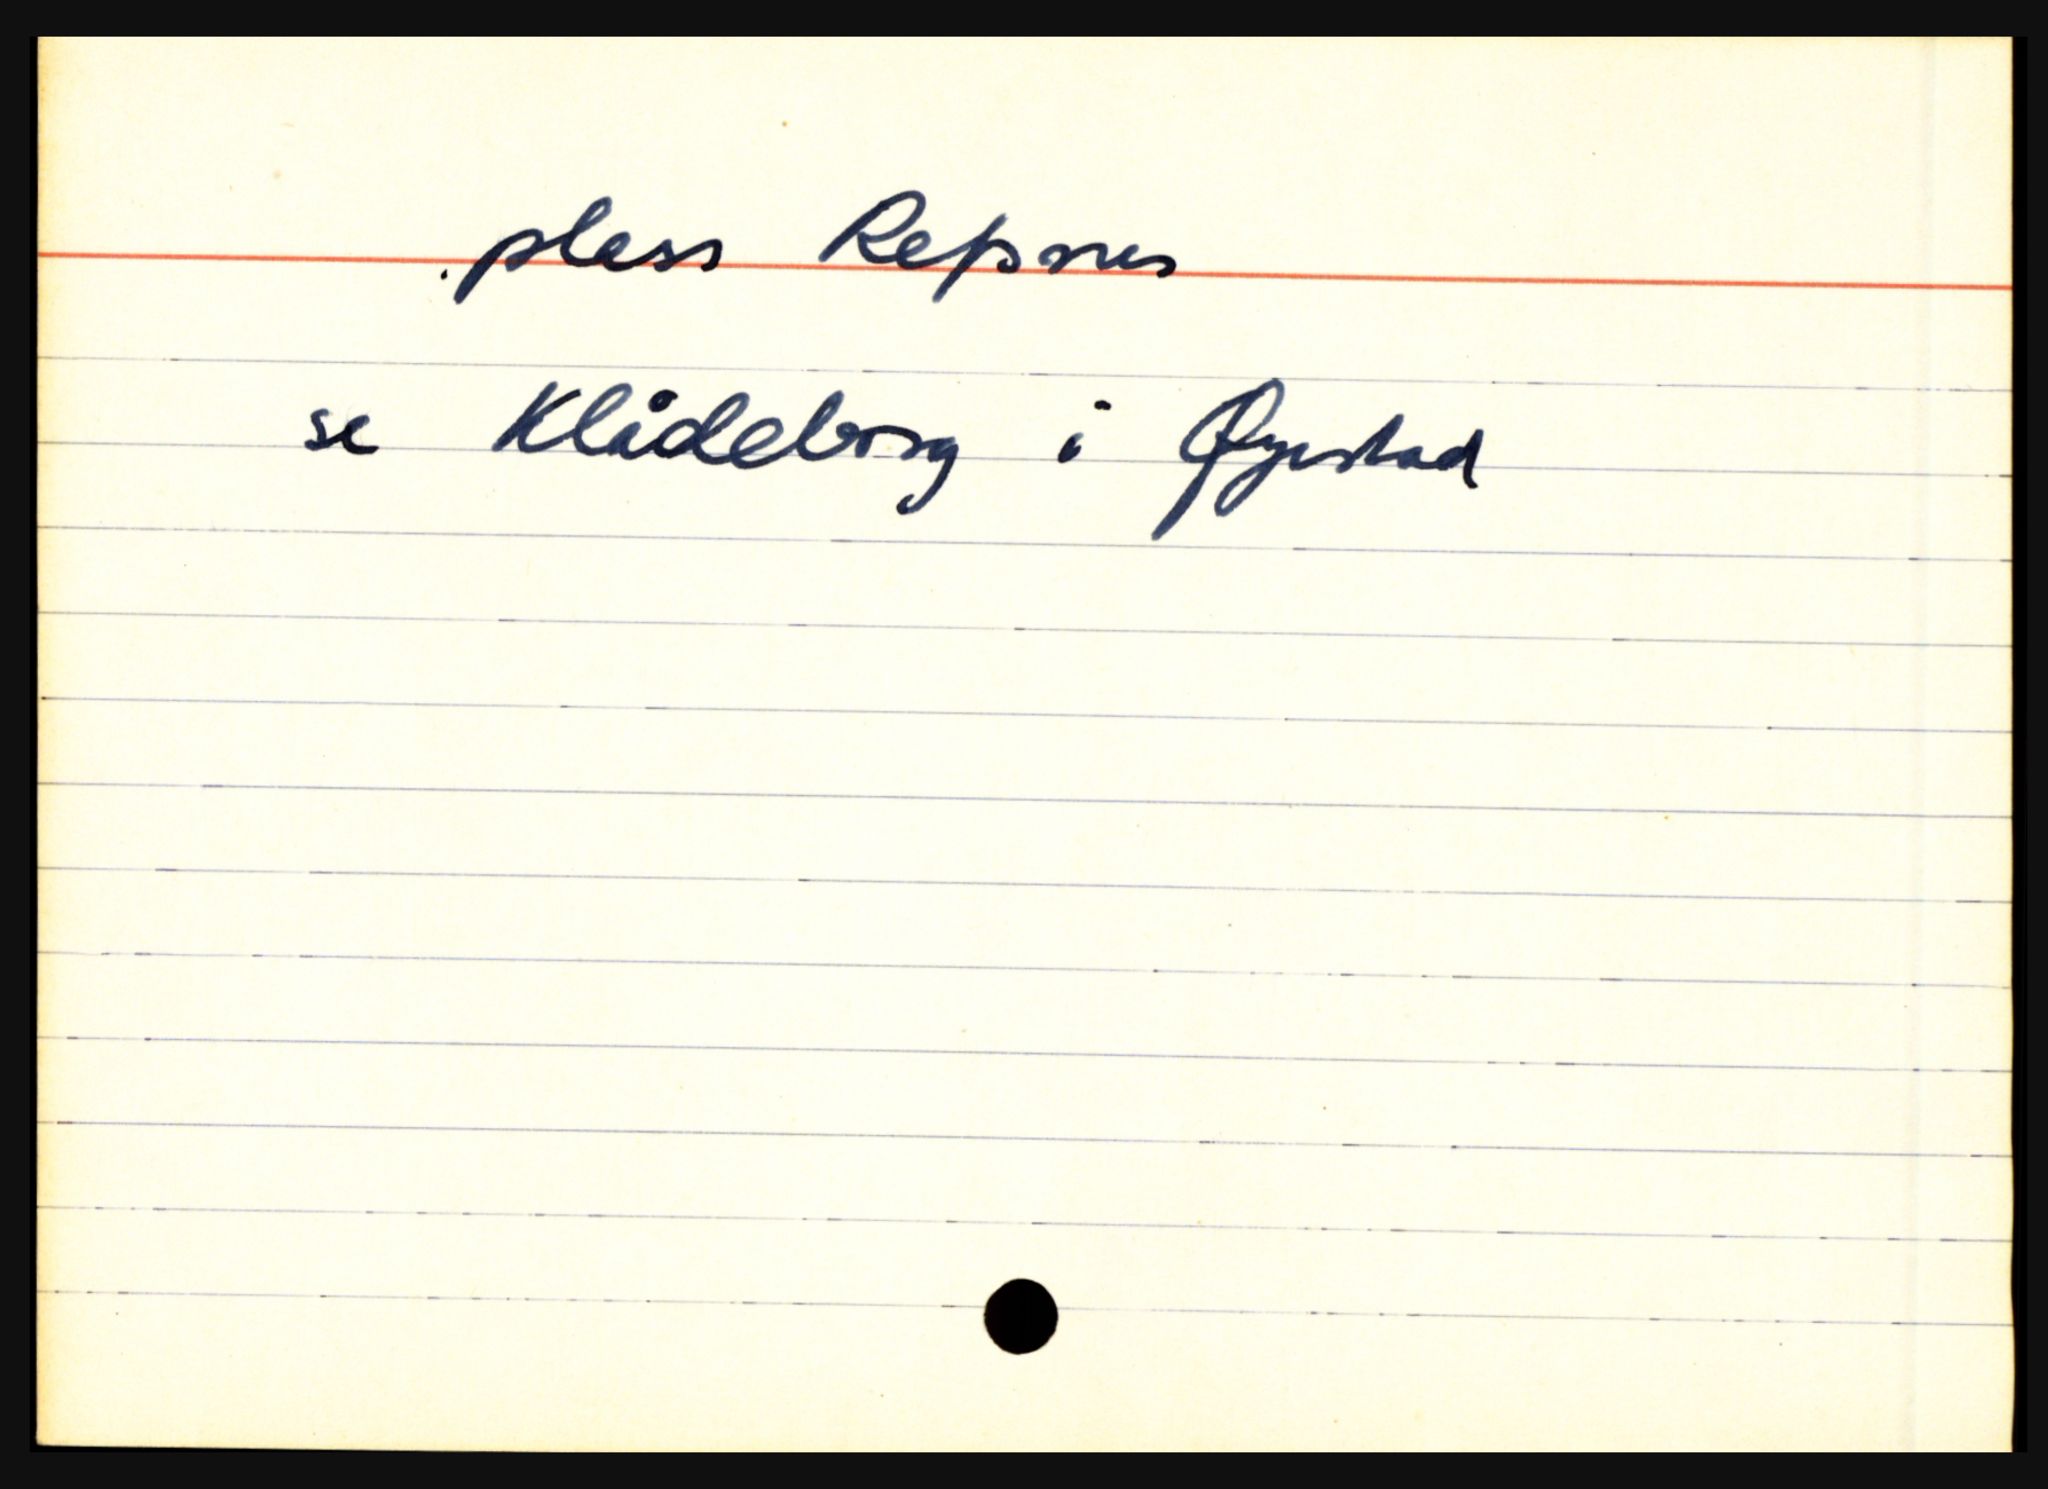 . plass Repsnes
se Klådeborg i Øyestad